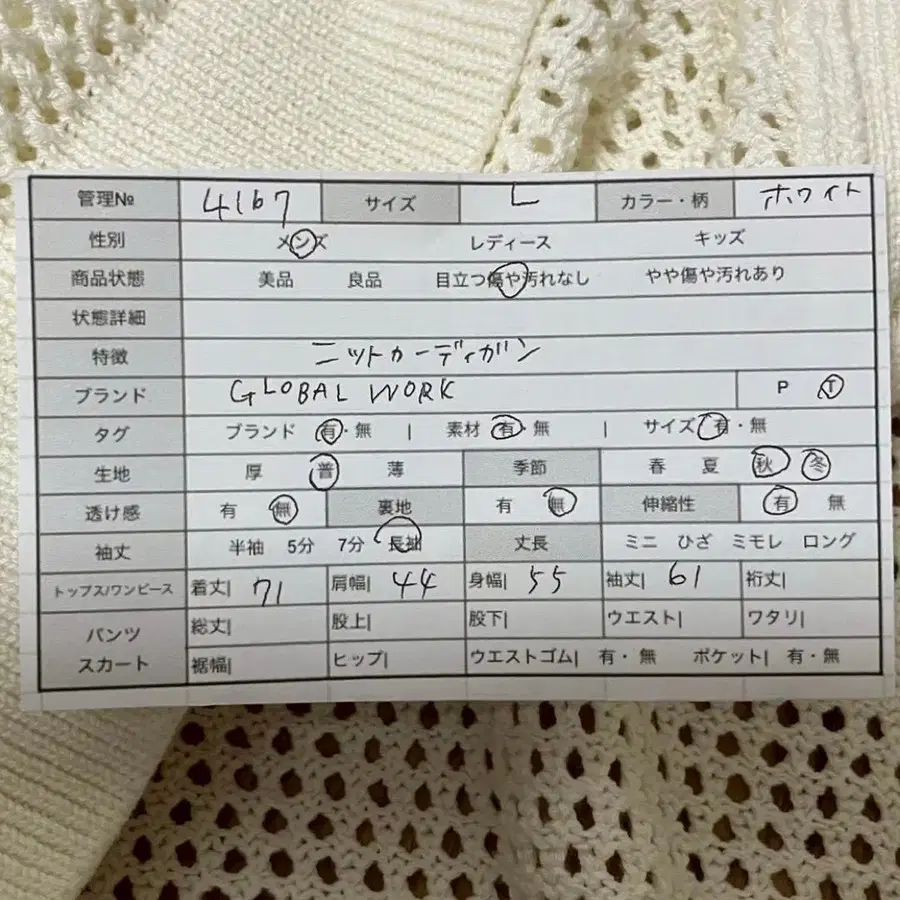 管理№ 4167 サイズ L カラー・柄 ホワイト
性別 メンズ レディース キッズ
商品状態 美品 良品 目立つ傷や汚れなし やや傷や汚れあり
状態詳細
特徴 ニットカーディガン
ブランド GLOBAL WORK P T
タグ ブランド 有・無 | 素材 有・無 | サイズ 有・無
生地 厚 普 薄 季節 春 夏 秋 冬
透け感 有 無 裏地 有 無 伸縮性 有 無
袖丈 半袖 5分 7分 長袖 丈長 ミニ ひざ ミモレ ロング
トップス/ワンピース 着丈| 71 肩幅| 44 身幅| 55 袖丈| 61 裄丈|
パンツ 総丈| 股上| 股下| ウエスト| ワタリ|
スカート 裾幅| ヒップ| ウエストゴム| 有・無 ポケット| 有・無